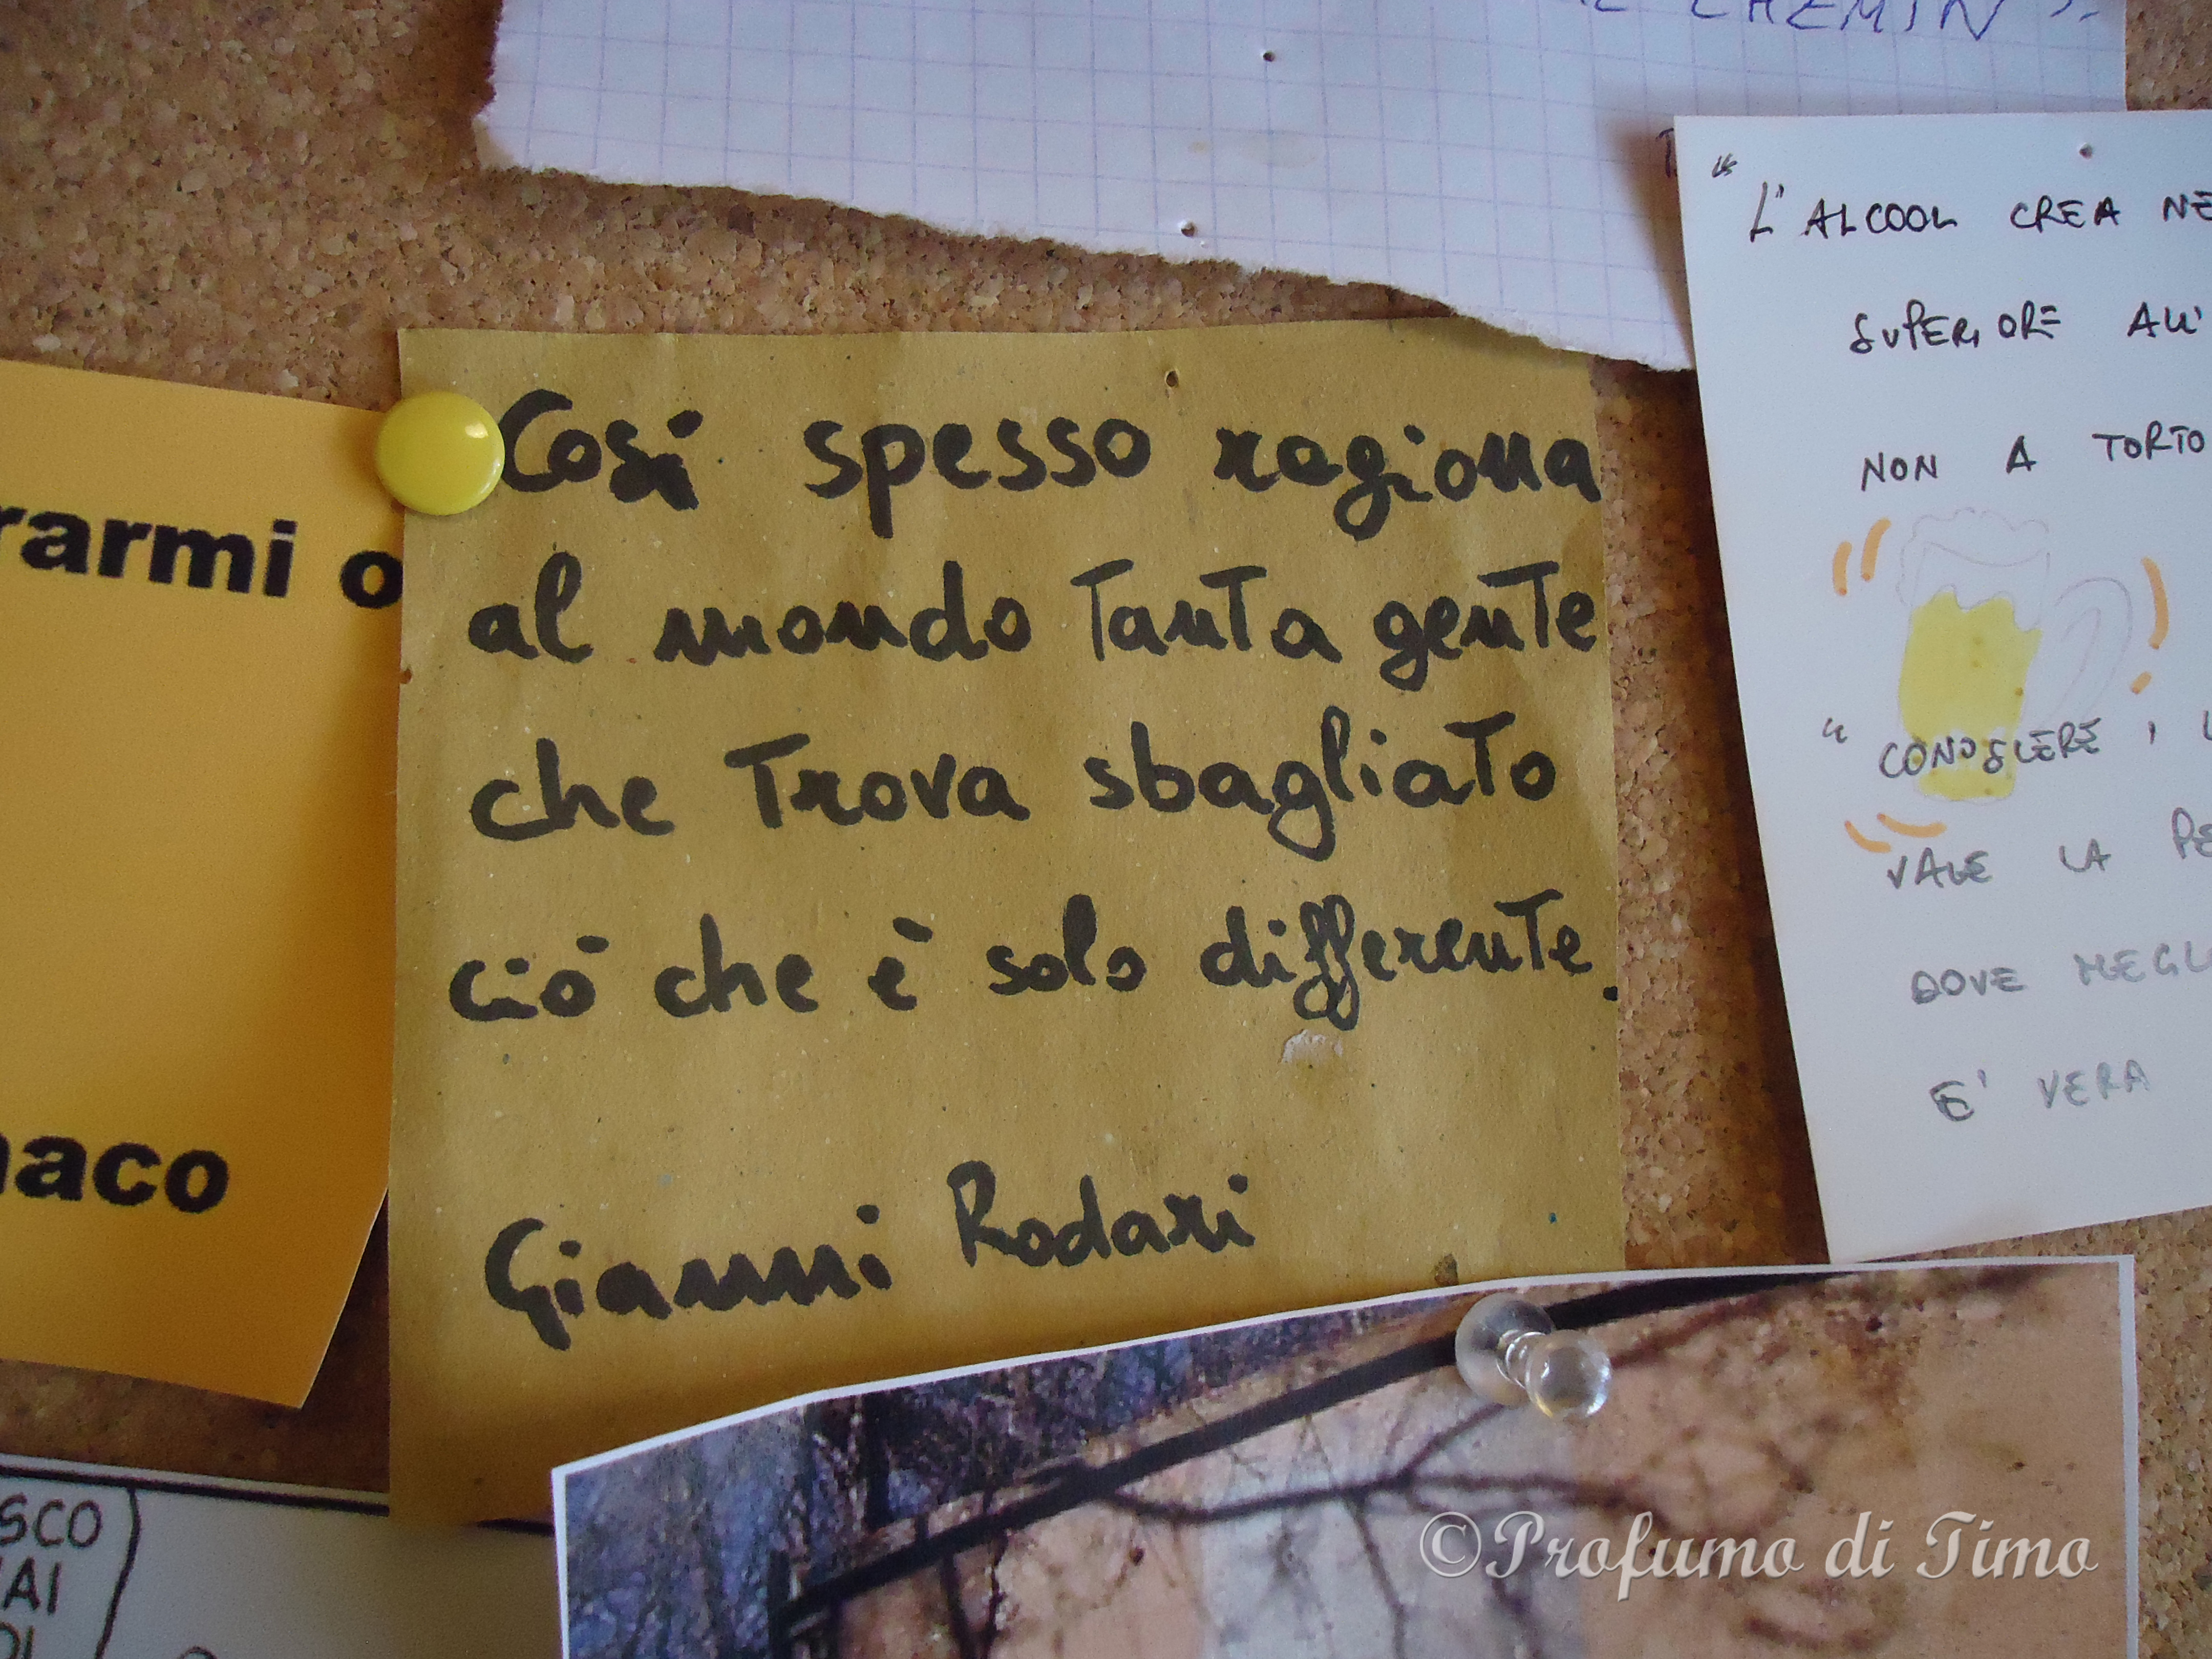 CHEMIN".
"L'ALCOOL CREA
SUPERIORE ALL'
NON A TORTO
"CONOSCERE
VALE LA
DOVE
E' VERA
Così spesso ragiona
al mondo tanta gente
che trova sbagliato
ciò che è solo differente.
Gianni Rodari
rarmi o
naco
SCO
AI
©Profumo di Timo